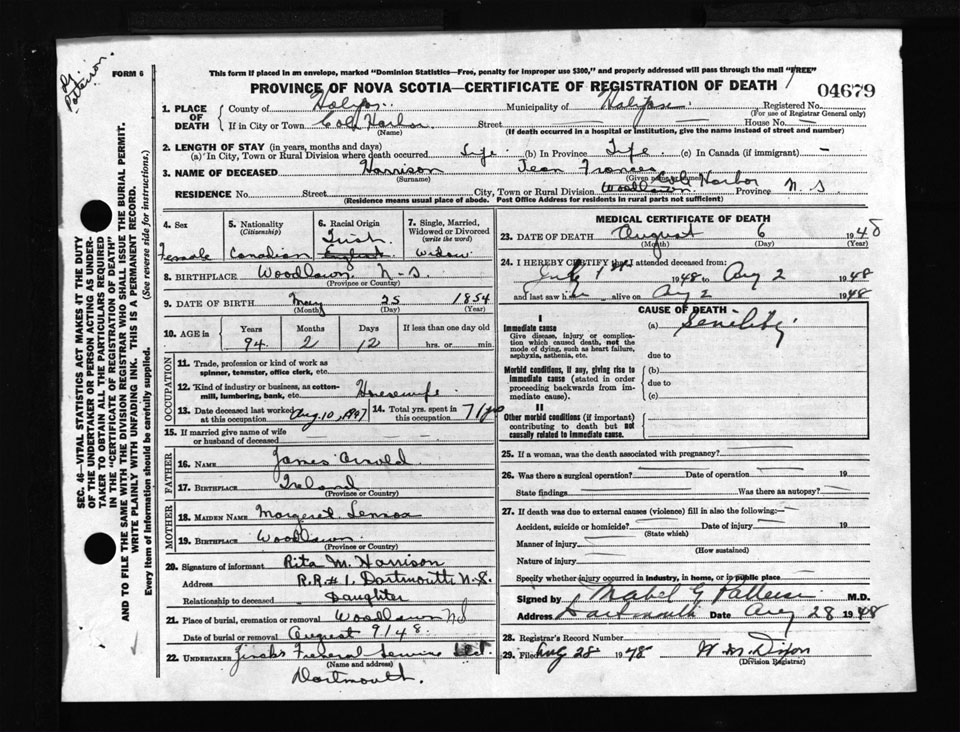 FORM 6
This form if placed in an envelope, marked "Dominion Statistics—Free, penalty for improper use $300," and properly addressed will pass through the mail "FREE"
PROVINCE OF NOVA SCOTIA—CERTIFICATE OF REGISTRATION OF DEATH
04679
1. PLACE OF DEATH County of Halifax Municipality of Halifax Registered No.
(For use of Registrar General only)
If in City or Town Cole Harbor Street House No.
(Name) (If death occurred in a hospital or institution, give the name instead of street and number)
2. LENGTH OF STAY (in years, months and days)
(a) In City, Town or Rural Division where death occurred Life (b) In Province Life (c) In Canada (if immigrant) —
3. NAME OF DECEASED Harrison Jean Frances
(Surname) (Given names)
RESIDENCE No. Street City, Town or Rural Division Woodlawn Cole Harbor Province N.S.
(Residence means usual place of abode. Post Office Address for residents in rural parts not sufficient)
4. Sex Female
5. Nationality (Citizenship) Canadian
6. Racial Origin Irish English
7. Single, Married, Widowed or Divorced (write the word) Widow
8. BIRTHPLACE Woodlawn N-S.
(Province or Country)
9. DATE OF BIRTH May 25 1854
(Month) (Day) (Year)
10. AGE in Years Months Days If less than one day old
94 2 12 hrs. or min.
OCCUPATION
11. Trade, profession or kind of work as spinner, teamster, office clerk, etc.
12. Kind of industry or business, as cotton-mill, lumbering, bank, etc. Housewife
13. Date deceased last worked at this occupation Aug. 10, 1947 14. Total yrs. spent in this occupation 71 yrs
15. If married give name of wife or husband of deceased
FATHER
16. NAME James Arnold
17. BIRTHPLACE Ireland
(Province or Country)
MOTHER
18. MAIDEN NAME Margaret Lennox
19. BIRTHPLACE Woodlawn
(Province or Country)
20. Signature of informant Rita M. Harrison
Address R.R.#1. Dartmouth N.S.
Relationship to deceased Daughter
21. Place of burial, cremation or removal Woodlawn NS
Date of burial or removal August 9/48.
22. UNDERTAKER Funeral Service Ltd.
(Name and address)
Dartmouth.
MEDICAL CERTIFICATE OF DEATH
23. DATE OF DEATH August 6 1948
(Month) (Day) (Year)
24. I HEREBY CERTIFY that I attended deceased from:
July 1st 1948 to Aug 2 1948
and last saw her alive on Aug 2 1948
CAUSE OF DEATH
I
Immediate cause (a) Senility
Give disease, injury or complication which caused death, not the mode of dying, such as heart failure, asphyxia, asthenia, etc.
due to
Morbid conditions, if any, giving rise to immediate cause (stated in order proceeding backwards from immediate cause).
(b)
due to
(c)
II
Other morbid conditions (if important) contributing to death but not causally related to immediate cause.
25. If a woman, was the death associated with pregnancy?
26. Was there a surgical operation? Date of operation 19
State findings Was there an autopsy?
27. If death was due to external causes (violence) fill in also the following:—
Accident, suicide or homicide? Date of injury 19
(State which)
Manner of injury
(How sustained)
Nature of injury
Specify whether injury occurred in industry, in home, or in public place
Signed by Mabel G M.D.
Address Dartmouth Date Aug 28 1948
28. Registrar's Record Number
29. Filed Aug 28 1948 W. M. Dixon
(Division Registrar)
SEC. 46—VITAL STATISTICS ACT MAKES IT THE DUTY
OF THE UNDERTAKER OR PERSON ACTING AS UNDER-
TAKER TO OBTAIN ALL THE PARTICULARS REQUIRED
IN THE "CERTIFICATE OF REGISTRATION OF DEATH"
AND TO FILE THE SAME WITH THE DIVISION REGISTRAR WHO SHALL ISSUE THE BURIAL PERMIT.
WRITE PLAINLY WITH UNFADING INK. THIS IS A PERMANENT RECORD.
Every item of information should be carefully supplied. (See reverse side for instructions.)